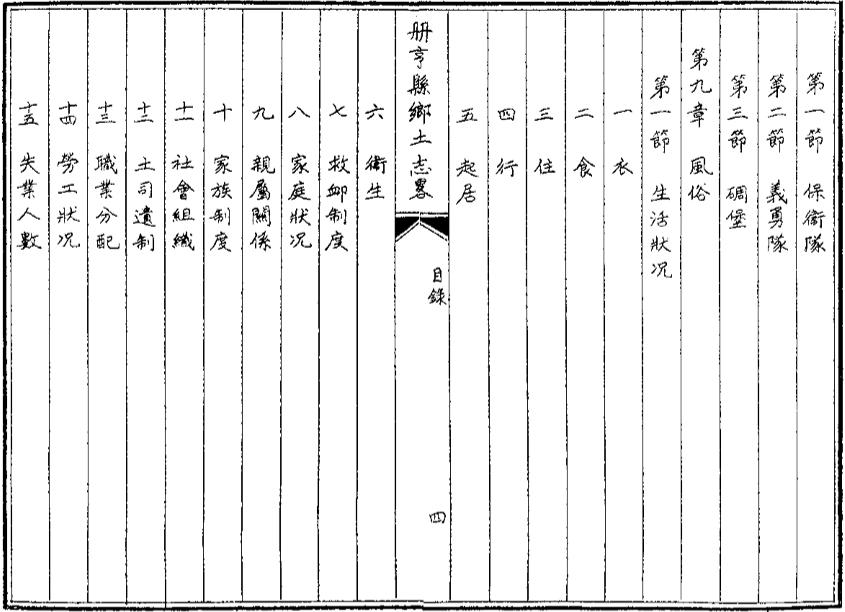 第一節 保衛隊
第二節 義勇隊
第三節 碉堡
第九章 風俗
第一節 生活狀况
一 衣
二 食
三 住
四 行
五 起居
册亨縣鄉土志畧 目錄 四
六 衛生
七 救卹制度
八 家庭狀况
九 親屬關係
十 家族制度
十一 社會組織
十二 土司遺制
十三 職業分配
十四 勞工狀况
十五 失業人數